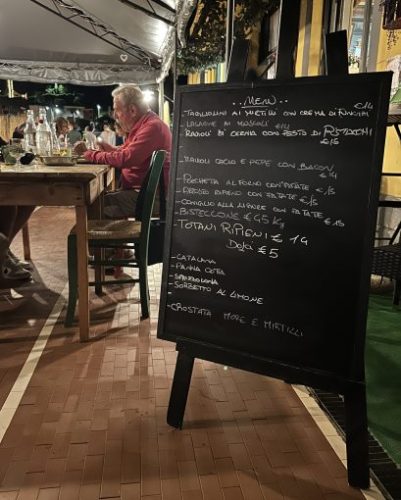 ..MENU..
-TAGLIOLINI AI MIRTILLI CON CREMA DI FUNGHI €14
-LASAGNE AI €14
-RAVIOLI DI CERNIA CON PESTO DI PISTACCHI €15
RAVIOLI CACIO E PEPE CON BACON €14
PORCHETTA AL FORNO CON PATATE €15
- RIPIENO CON PATATE €15
-CONIGLIO ALLA LIGURE CON PATATE €15
-BISTECCONE €45 Kg
-TOTANI RIPIENI € 14
Dolci € 5
-CATALANA
-PANNA COTTA
-SORBETTO AL LIMONE
-CROSTATA MORE E MIRTILLI